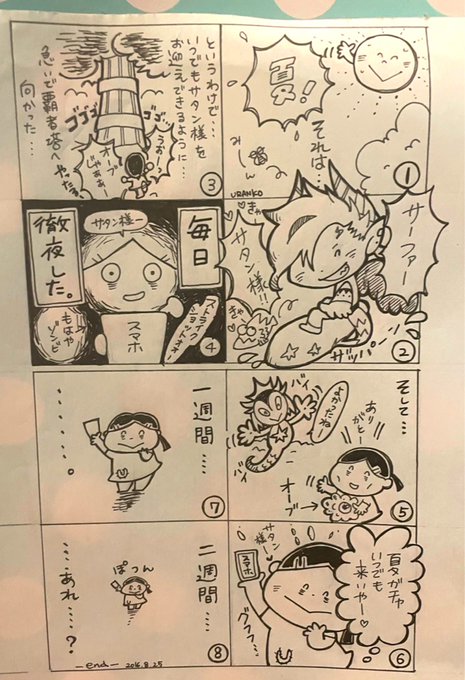 夏!
それは…
みーんみーん
①
URANKO
サーファー
きゃー
サタン様!!
きゃー
ザッパーン
②
というわけで…
いつでもサタン様を
お迎えできるように…
急いで覇者塔へ
向かった…
ゴゴゴ
ゴゴゴ
うおー!
オーブ
じゃああ
やったる
③
毎日
徹夜した。
サタン様
スマホ
ストライク
ショットォォ
もはや
ゾンビ
④
そして…
ありがとー
よかったねー
バイ
バイ
オーブ
⑤
夏ガチャ
いつでも
来いやー
サタン様
スマホ
グフフ…
⑥
一週間…
………。
⑦
二週間…
ぽつん
……あれ…?
⑧
—end— 2016.8.25